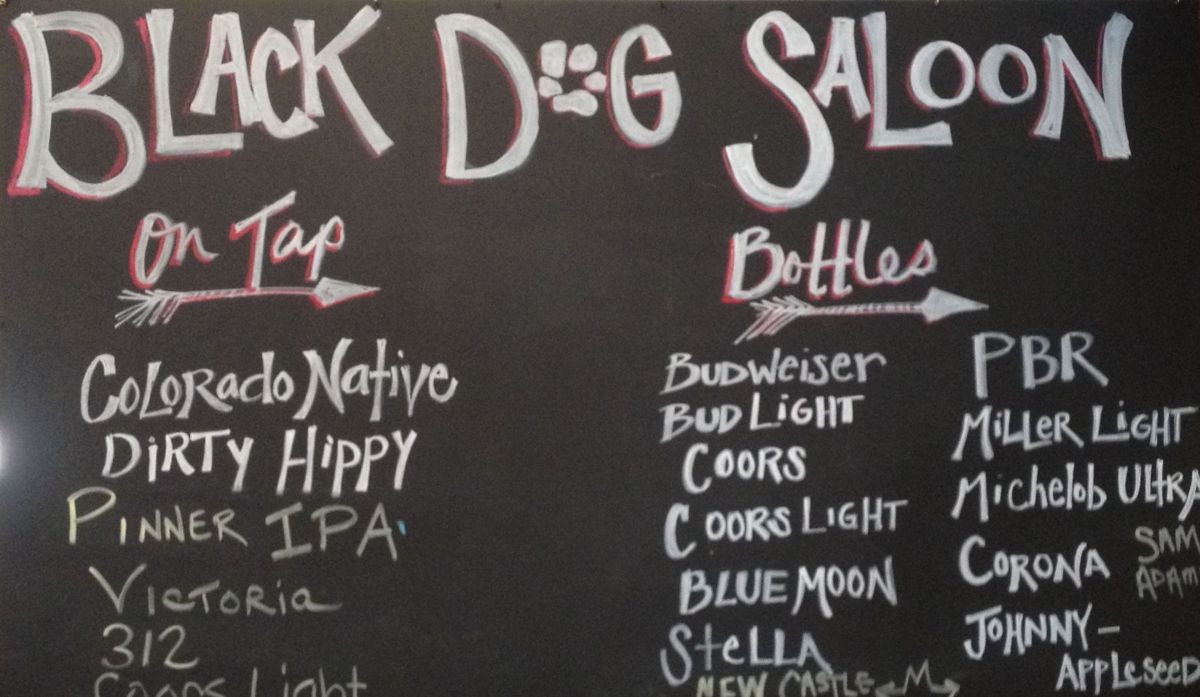 BLACK DOG SALOON
On Tap
COLORADO Native
DiRTY HiPPY
PINNER IPA
VICTORia
312
Coors Light
Bottles
BUDWeiser
BUD LiGHT
COORS
COORS LIGHT
BLUE MOON
SteLLA
NEW CASTLE
PBR
MiLLeR LiGHT
Michelob ULtRA
CORONA
SAM
ADAM
JOHNNY-
APPLeseeD